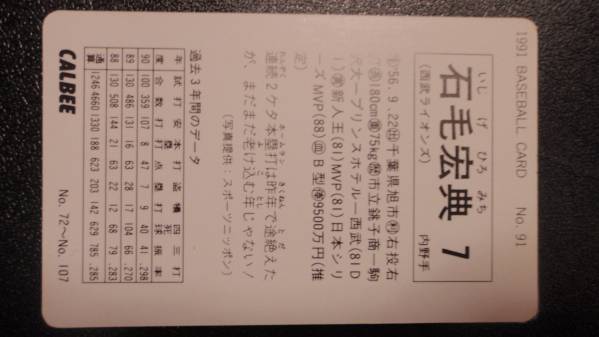 1991 BASEBALL CARD No. 91
いしげ ひろみち
石毛宏典 7
(西武ライオンズ) 内野手
'56. 9. 22 千葉県旭市 右投右
180cm 75kg 市立銚子商ー駒
沢大ープリンスホテルー西武(81D
1) 新人王(81)MVP(81)日本シリ
ーズMVP(88) B型 9500万円(推
定)
連続2ケタ本塁打は昨年で途絶えた
が、まだまだ老け込む年じゃない!
(写真提供:スポーツニッポン)
過去3年間のデータ
年度 試合 打数 安打 本塁打 打点 盗塁 犠打 四死球 三振 打率
90 100 359 107 8 47 7 9 40 41 .298
89 130 486 131 16 63 28 17 104 66 .270
88 130 508 144 21 63 22 12 68 79 .283
通算 1246 4660 1330 188 623 203 142 629 785 .285
CALBEE No. 72〜No. 107